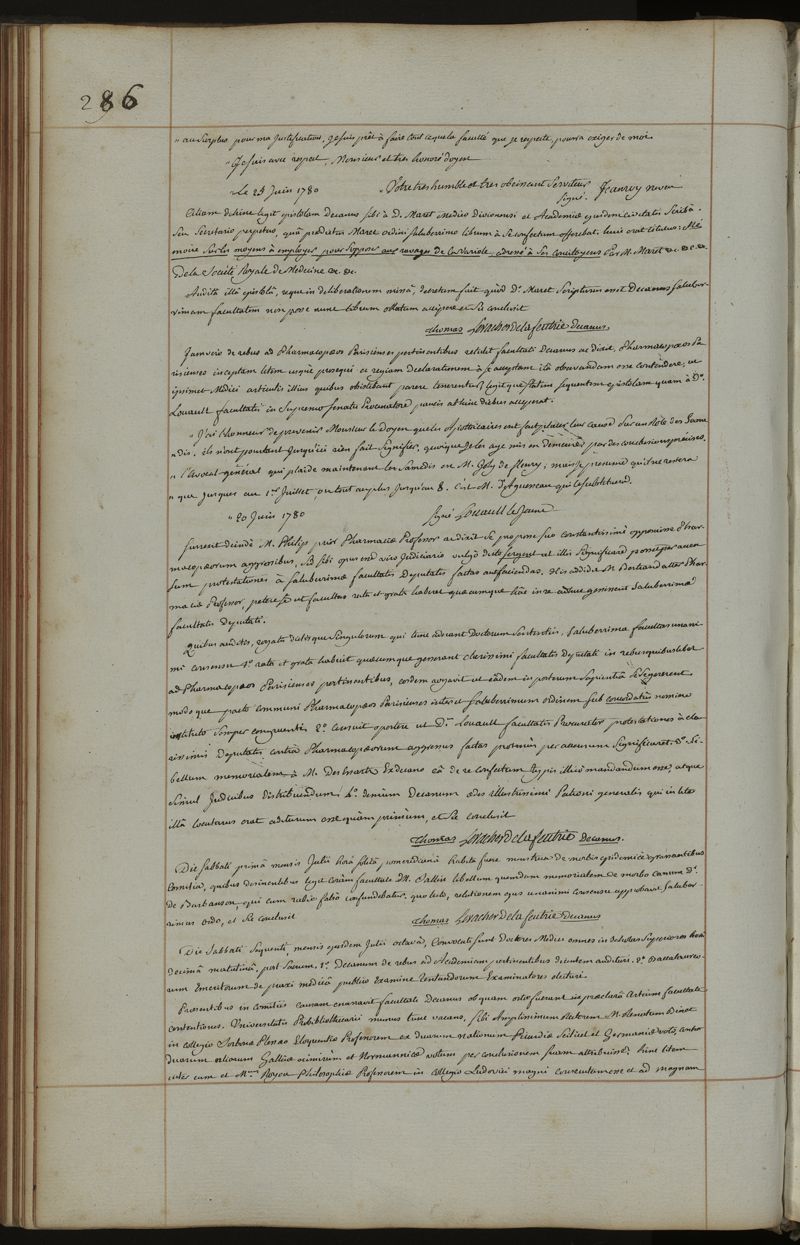 286
" au Surplus pour ma justification, je suis prêt à faire tout ce que la faculté que je respecte, pourra exiger de moi.
" Je suis avec respect, Monsieur et très honoré doyen
" Le 24 Juin 1780 " Votre très humble et très obéissant Serviteur
Signé Jeanroy neveu
Etiam denique legit epistolam Decanus sibi à D. Maret Medico Divionensi et Academiæ ejusdem civitatis Scribâ
Seu Secretario perpetuo, quâ prædictus Maret ordini saluberrimo librum à Se confectum offerebat, huic erat titulus: Mé
moire Sur les moyens à employer pour s'opposer aux ravages de la Variole, adressé à Ses concitoyens Par M. Maret &c. &c. &c.
De la Société Royale de Médecine &c. &c.
Auditâ illâ epistolâ, reque in deliberationem missâ, decretum fuit quod Dr. Maret Scripturus esset Decanus Saluber-
rimam facultatem non posse nunc librum oblatum accipere et Sic conclusit
Thomas Levacher de la feutrie Decanus.
Jam vero de rebus ad Pharmacopæos Parisienses pertinentibus retulit facultati Decanus ac dixit, Pharmacopæos Pa
risienses inceptam litem usque prosequi ac regiam Declarationem à acceptam ita observandam esse contendere, ut
ipsimet Medici articulis illius quibus obsistebant parere tenerentur; legitque statim sequentem epistolam quam à Dno.
Louault facultatis in Supremo Senatu Procuratore paucis abhinc diebus acceperat.
" J'ai l'honneur de prévenir Monsieur le Doyen que les Apothicaires ont fait placer leur cause Sur un Role des Same
" dis, ils n'ont pourtant jusqu'ici rien fait Signifier, quoique je les aye mis en demeure par des conclusions précises,
" l'avocat-général qui plaide maintenant les Samedis est M. Joly de fleury, mais je présume qu'il ne restera
" que jusques au 1er Juillet, ou tout au plus jusqu'au 8. C'est M. D'Aguesseau qui le Substituera.
" 20 Juin 1780 Signé Louault le Jeune
Surrexit deinde M. Philip prior Pharmaciæ Professor ac dixit Se pro posse suo constantissimè opponere Phar-
macopæorum aggressibus, Sed sibi opus esse viro Judiciario vulgò dicto Sergent ut illis Significare posset per accen
sum protestationes à Saluberrimæ facultatis Deputatis factas aut faciendas. His addidit M. Bertrand alter Phar
maciæ Professor, petere Se ut facultas rata et grata haberet quæcumque hac in re gessissent Saluberrimæ
facultatis Deputati.
Quibus auditis, rogatis dictisque Singulorum qui tunc aderant Doctorum Sententiis, Saluberrima facultas unani
mi consensu 1o. rata et grata habuit quæcumque gesserant clarissimi facultatis Deputati in rebus quibuslibet
ad Pharmacopæos Parisienses pertinentibus, eosdem rogavit ut eâdem in posterum Sapientiâ Se gererent
modoque pacto communi Pharmacopæos Parisienses inter et Saluberrimum ordinem Sub concordatûs nomine
instituto Semper congruenti. 2o. Censuit oportere ut Dr. Louault facultatis Procurator protestationes à cla
rissimis Deputatis contra Pharmacopæorum aggressus factas protinùs per accensum Significaret. 3o. Li-
bellum memorialem à M. Desessartz Exdecano eâ de re confectum typis illico mandandum esse, atque
Simul Judicibus distribuendum. 4o. demùm Decanum ædes illustrissimi Patroni generalis qui in lite
illâ locuturus erat aditurum esse quàm primùm, et Sic conclusit
Thomas Levacher de la feutrie Decanus.
Die Sabbati primâ mensis Julii horâ solitâ pomeridianâ habita fuere menstrua de morbis epidemicè grassantibus
Comitia, quibus desinentibus legit coràm facultate M. Sallin libellum quemdam memorialem de morbo Canum Dni.
de Barbançon, qui cum rabie falsò confundebatur, quo lecto, relationem ejus unanimi consensu approbavit Saluber-
rimus ordo, et Sic conclusit
Thomas Levacher de la feutrie Decanus
Die Sabbati Sequenti, mensis ejusdem Julii octavâ, Convocati sunt Doctores Medici omnes in Scholas Superiores horâ
decimâ matutinâ, post Sacrum. 1o. Decanum de rebus ad Academiam pertinentibus dicentem audituri. 2o. Baccalaureo-
rum Emeritorum de praxi medicâ publico Examine tentandorum Examinatores electuri.
Præsentibus in Comitiis causam enarravit facultati Decanus ob quam ortæ fuerant in præclarâ Artium facultate
contentiones. Universitatis Probibliothecarii munus tunc vacans, sibi Amplissimum Rectorem M. Clenotum Binet
in collegio Sorbonæ Plessæo Eloquentiæ Professorem ex duarum nationum Picardiæ Scilicet et Germaniæ votis, contra
duarum aliarum Galliæ nimirùm et Normanniæ votum per conclusionem Suam attribuisse; hinc litem
inter eum et Mum. Royou Philosophiæ Professorem in Collegio Ludovici magni consecutam esse et ad magnam